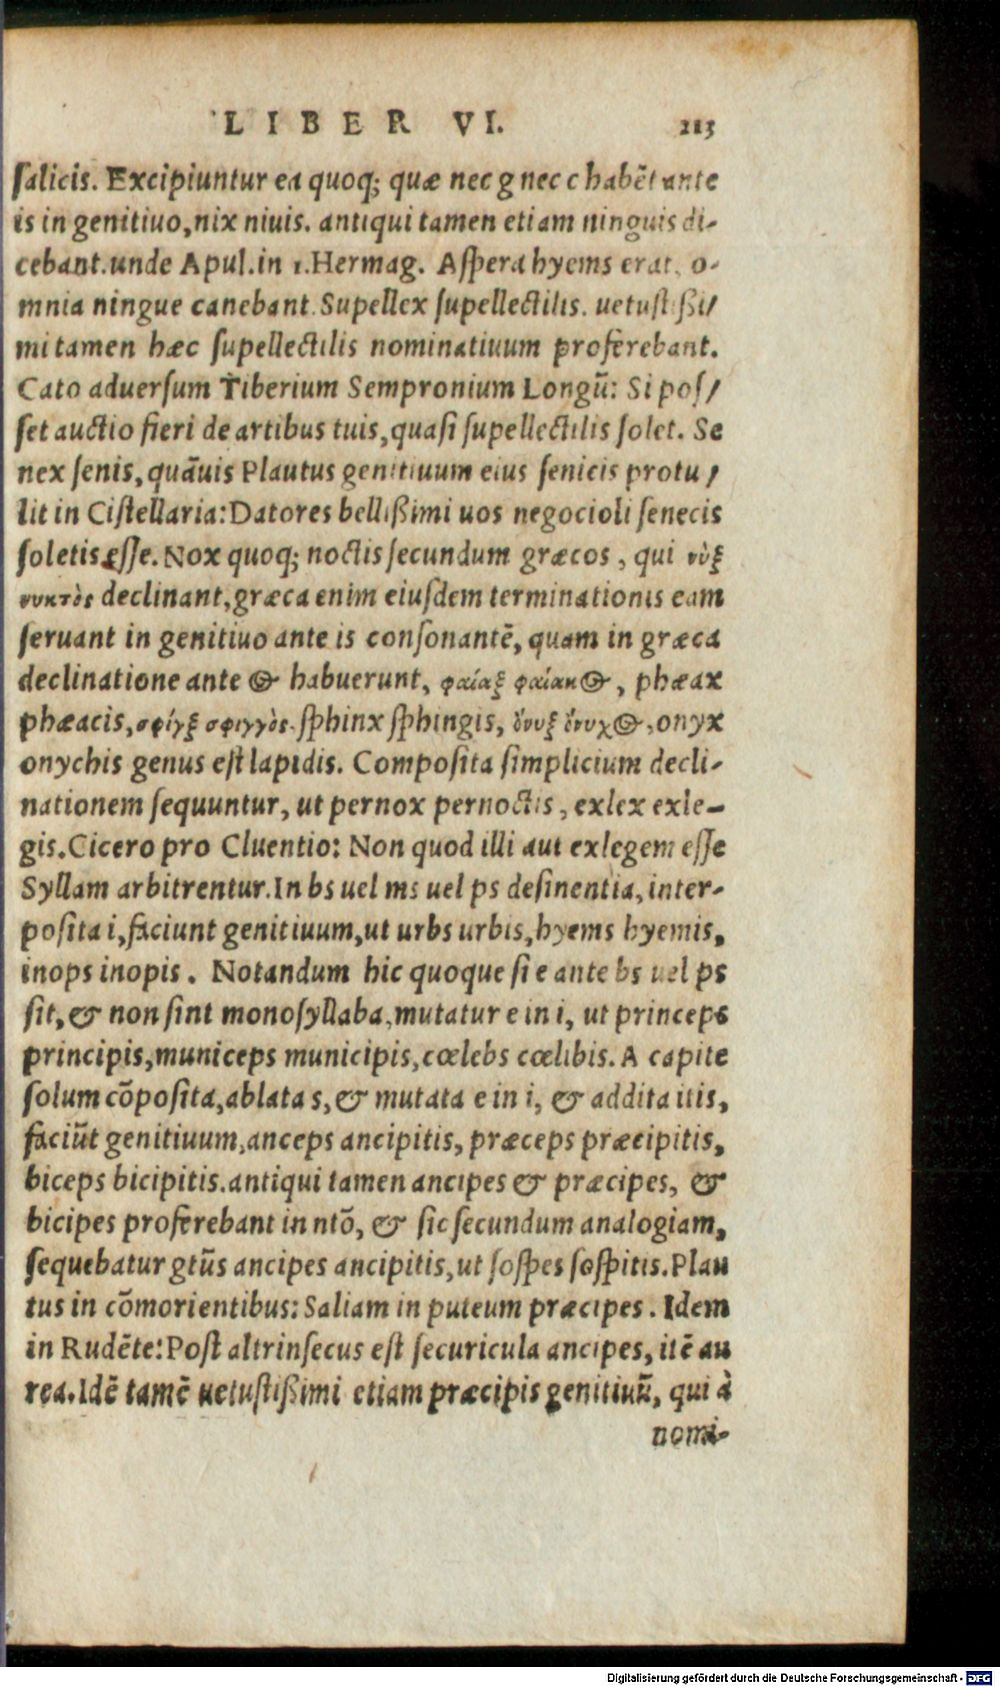 LIBER VI. 213
salicis. Excipiuntur ea quoq; quæ nec g nec c habẽt ante
is in genitiuo, nix niuis. antiqui tamen etiam ninguis di-
cebant. unde Apul. in 1. Hermag. Aspera hyems erat, o-
mnia ningue canebant. Supellex supellectilis. uetustißi/
mi tamen hæc supellectilis nominatiuum proferebant.
Cato aduersum Tiberium Sempronium Longũ: Si pos/
set auctio fieri de artibus tuis, quasi supellectilis solet. Se
nex senis, quãuis Plautus genitiuum eius senicis protu/
lit in Cistellaria: Datores bellißimi uos negocioli senecis
soletis esse. Nox quoq; noctis secundum græcos, qui νὺξ
νυκτὸς declinant, græca enim eiusdem terminationis eam
seruant in genitiuo ante is consonantẽ, quam in græca
declinatione ante ος habuerunt, φαίαξ φαίακος, phæax
phæacis, σφίγξ σφιγγὸς. sphinx sphingis, ὄνυξ ὄνυχος, onyx
onychis genus est lapidis. Composita simplicium decli-
nationem sequuntur, ut pernox pernoctis, exlex exle-
gis. Cicero pro Cluentio: Non quod illi aut exlegem esse
Syllam arbitrentur. In bs uel ms uel ps desinentia, inter-
posita i, faciunt genitiuum, ut urbs urbis, hyems hyemis,
inops inopis. Notandum hic quoque si e ante bs uel ps
sit, & non sint monosyllaba, mutatur e in i, ut princeps
principis, municeps municipis, cœlebs cœlibis. A capite
solum cõposita, ablata s, & mutata e in i, & addita itis,
faciũt genitiuum, anceps ancipitis, præceps præcipitis,
biceps bicipitis. antiqui tamen ancipes & præcipes, &
bicipes proferebant in ntõ, & sic secundum analogiam,
sequebatur gtũs ancipes ancipitis, ut sospes sospitis. Plau
tus in cõmorientibus: Saliam in puteum præcipes. Idem
in Rudẽte: Post altrinsecus est securicula ancipes, itẽ au
rea. Idẽ tamẽ uetustißimi etiam præcipis genitiuũ, qui à
nomi-
Digitalisierung gefördert durch die Deutsche Forschungsgemeinschaft - DFG